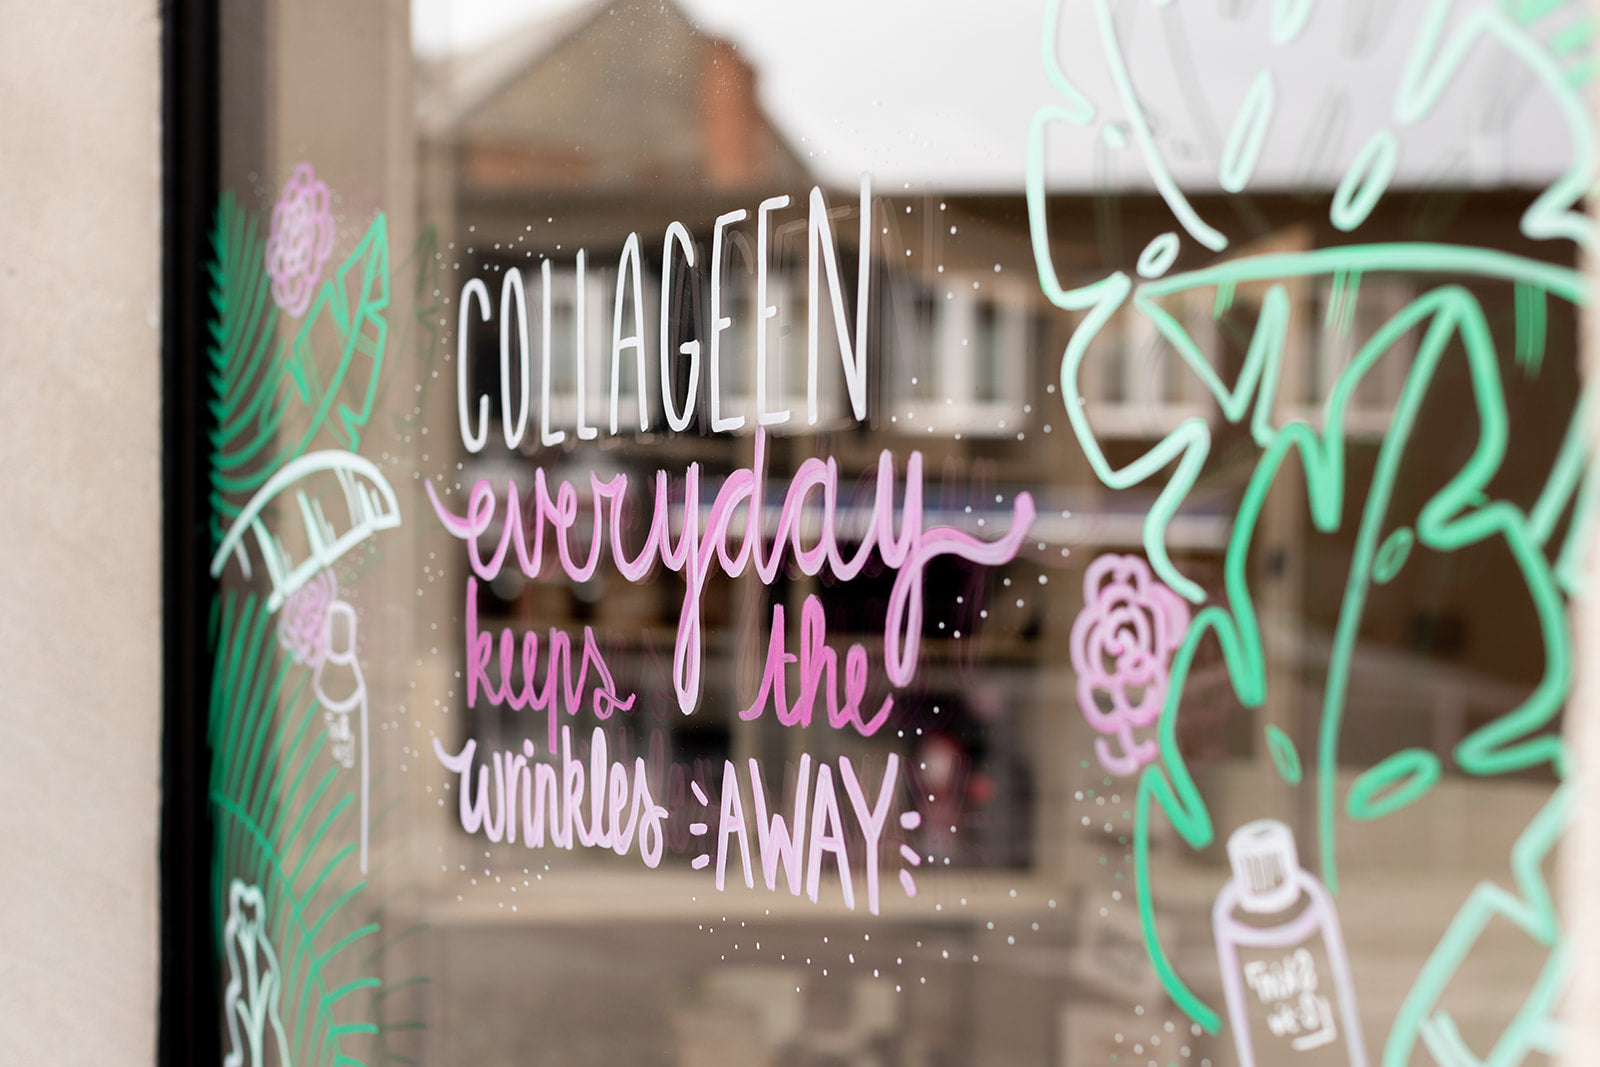 COLLAGEEN
everyday
keeps the
wrinkles AWAY